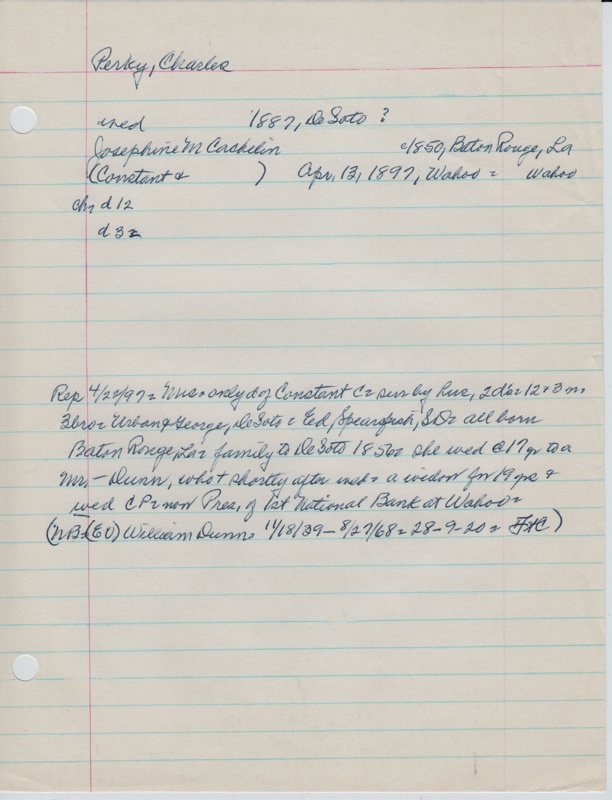 Perky, Charles
wed 1887, DeSoto ?
Josephine M Cachelin c1850, Baton Rouge, La
(Constant & ) Apr. 13, 1897, Wahoo = Wahoo
ch= d 12
d 3=
Rep 4/22/97 = Mrs = only d of Constant C = sur by hus, 2 d's = 12 & 3 m
3 bro = Urban & George, DeSoto = Ed, Spearfish, SD = all born
Baton Rouge, La = family to DeSoto 1856 = she wed @ 17 yr to a
Mr, — Dunn, who + shortly after wed = a widow for 19 yrs &
wed CP = now Pres, of 1st National Bank at Wahoo =
(NB= (EV) William Dunn = 11/18/39 – 8/27/68 = 28-9-20 = )